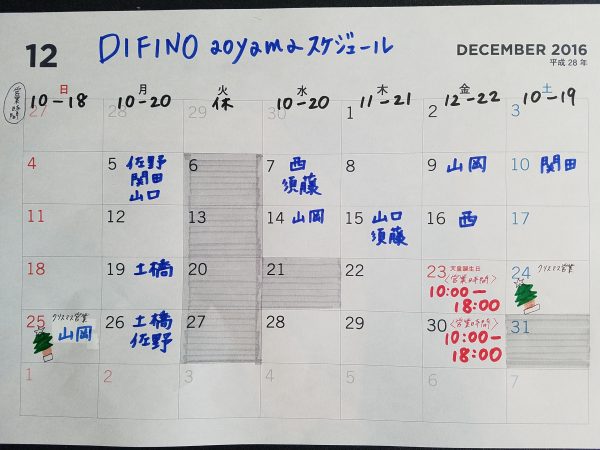 12
DIFINO aoyamaスケジュール
DECEMBER 2016
平成 28 年
営業時間
日 月 火 水 木 金 土
10-18 10-20 休 10-20 11-21 12-22 10-19
27 28 29 30 1 2 3
4 5 佐野 6 7 西 8 9 山岡 10 関田
関田 須藤
山口
11 12 13 14 山岡 15 山口 16 西 17
須藤
18 19 土橋 20 21 22 23 天皇誕生日 24 クリスマス営業
<営業時間>
10:00-
18:00
25 クリスマス営業 26 土橋 27 28 29 30 <営業時間> 31
山岡 佐野 10:00-
18:00
1 2 3 4 5 6 7